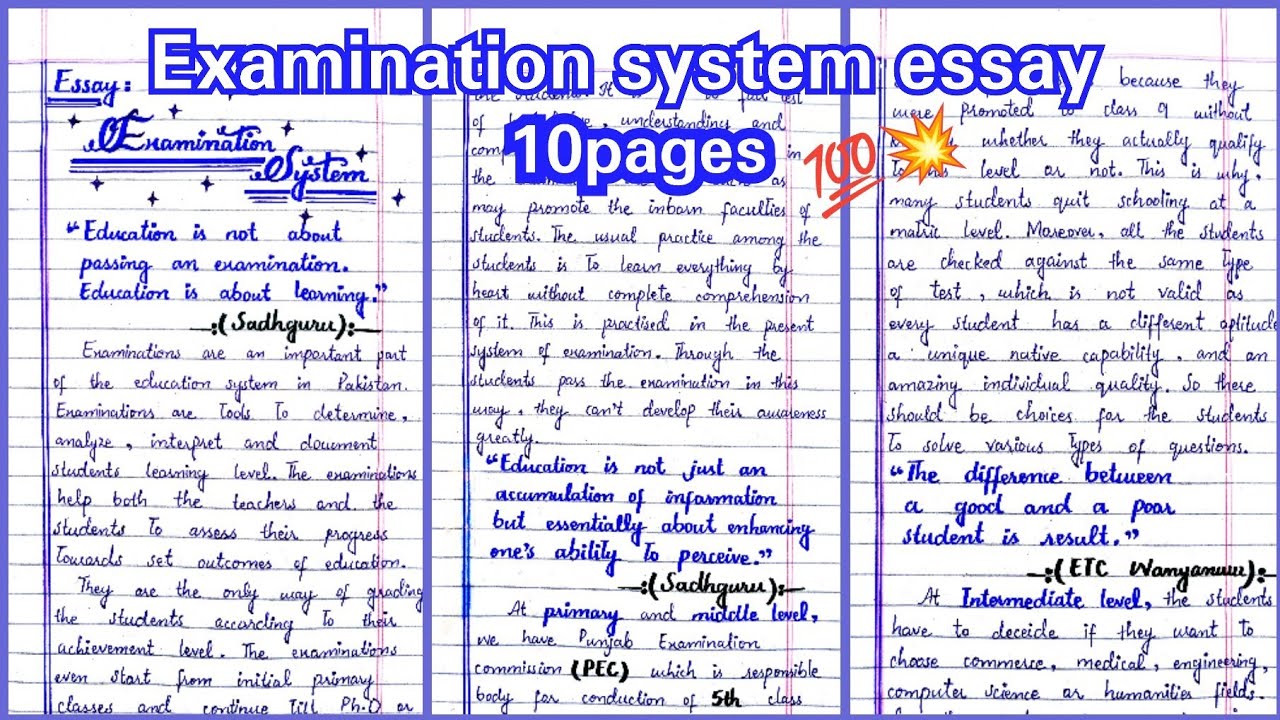 Examination system essay
10pages 💯💥
Essay:
Examination
System
“Education is not about
passing an examination.
Education is about learning.”
—:(Sadhguru):—
Examinations are an important part
of the education system in Pakistan.
Examinations are Tools To determine,
analyze, interpret and document
students learning level. The examinations
help both the teachers and the
students To assess their progress
Towards set outcomes of education.
They are the only way of grading
the students according To their
achievement level. The examinations
even start from initial primary
classes and continue Till Ph.D or
of understanding and
in
the as
may promote the inborn faculties of
students. The usual practice among the
students is To learn everything by
heart without complete comprehension
of it. This is practised in the present
system of examination. Through the
students pass the examination in this
way, they can't develop their awareness
greatly.
“Education is not just an
accumulation of information
but essentially about enhancing
one's ability To perceive.”
—:(Sadhguru):—
At primary and middle level,
we have Punjab Examination
commission (PEC) which is responsible
body for conduction of 5th class
because they
were promoted to class 9 without
whether they actually qualify
level or not. This is why,
many students quit schooling at a
matric level. Moreover, all the students
are checked against the same Type
of test, which is not valid as
every student has a different aptitude
a unique native capability, and an
amazing individual quality. So there
should be choices for the students
To solve various Types of questions.
“The difference between
a good and a poor
student is result.”
—:(ETC Wanyanwu):—
At Intermediate level, the students
have to deceide if they want To
choose commerce, medical, engineering,
computer science or humanities fields.